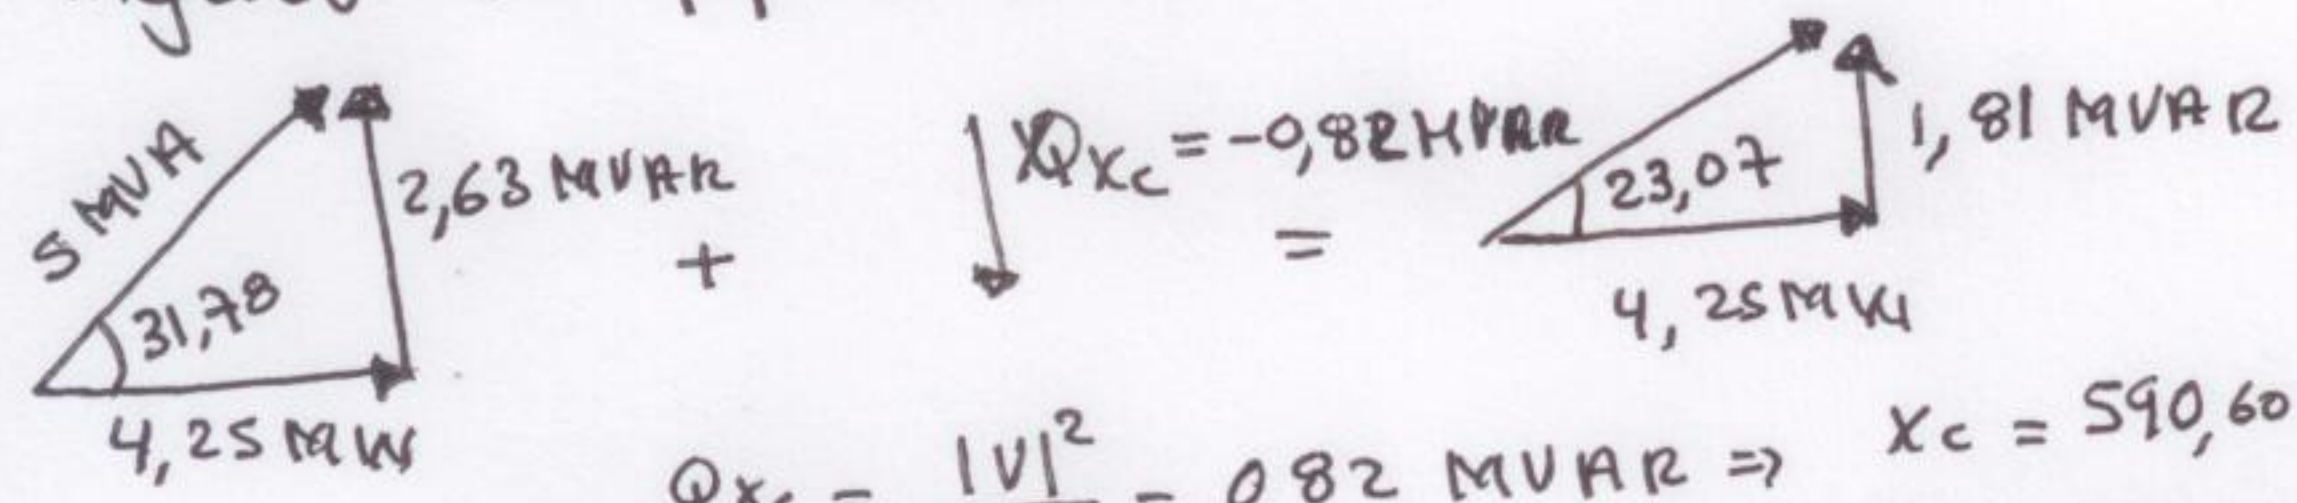 5 MVA
2,63 MVAR
31,78
4,25 MW
+
Qxc = -0,82 MVAR
=
23,07
1,81 MVAR
4,25 MW
Qxc = |V|² = 0,82 MVAR => Xc = 590,60